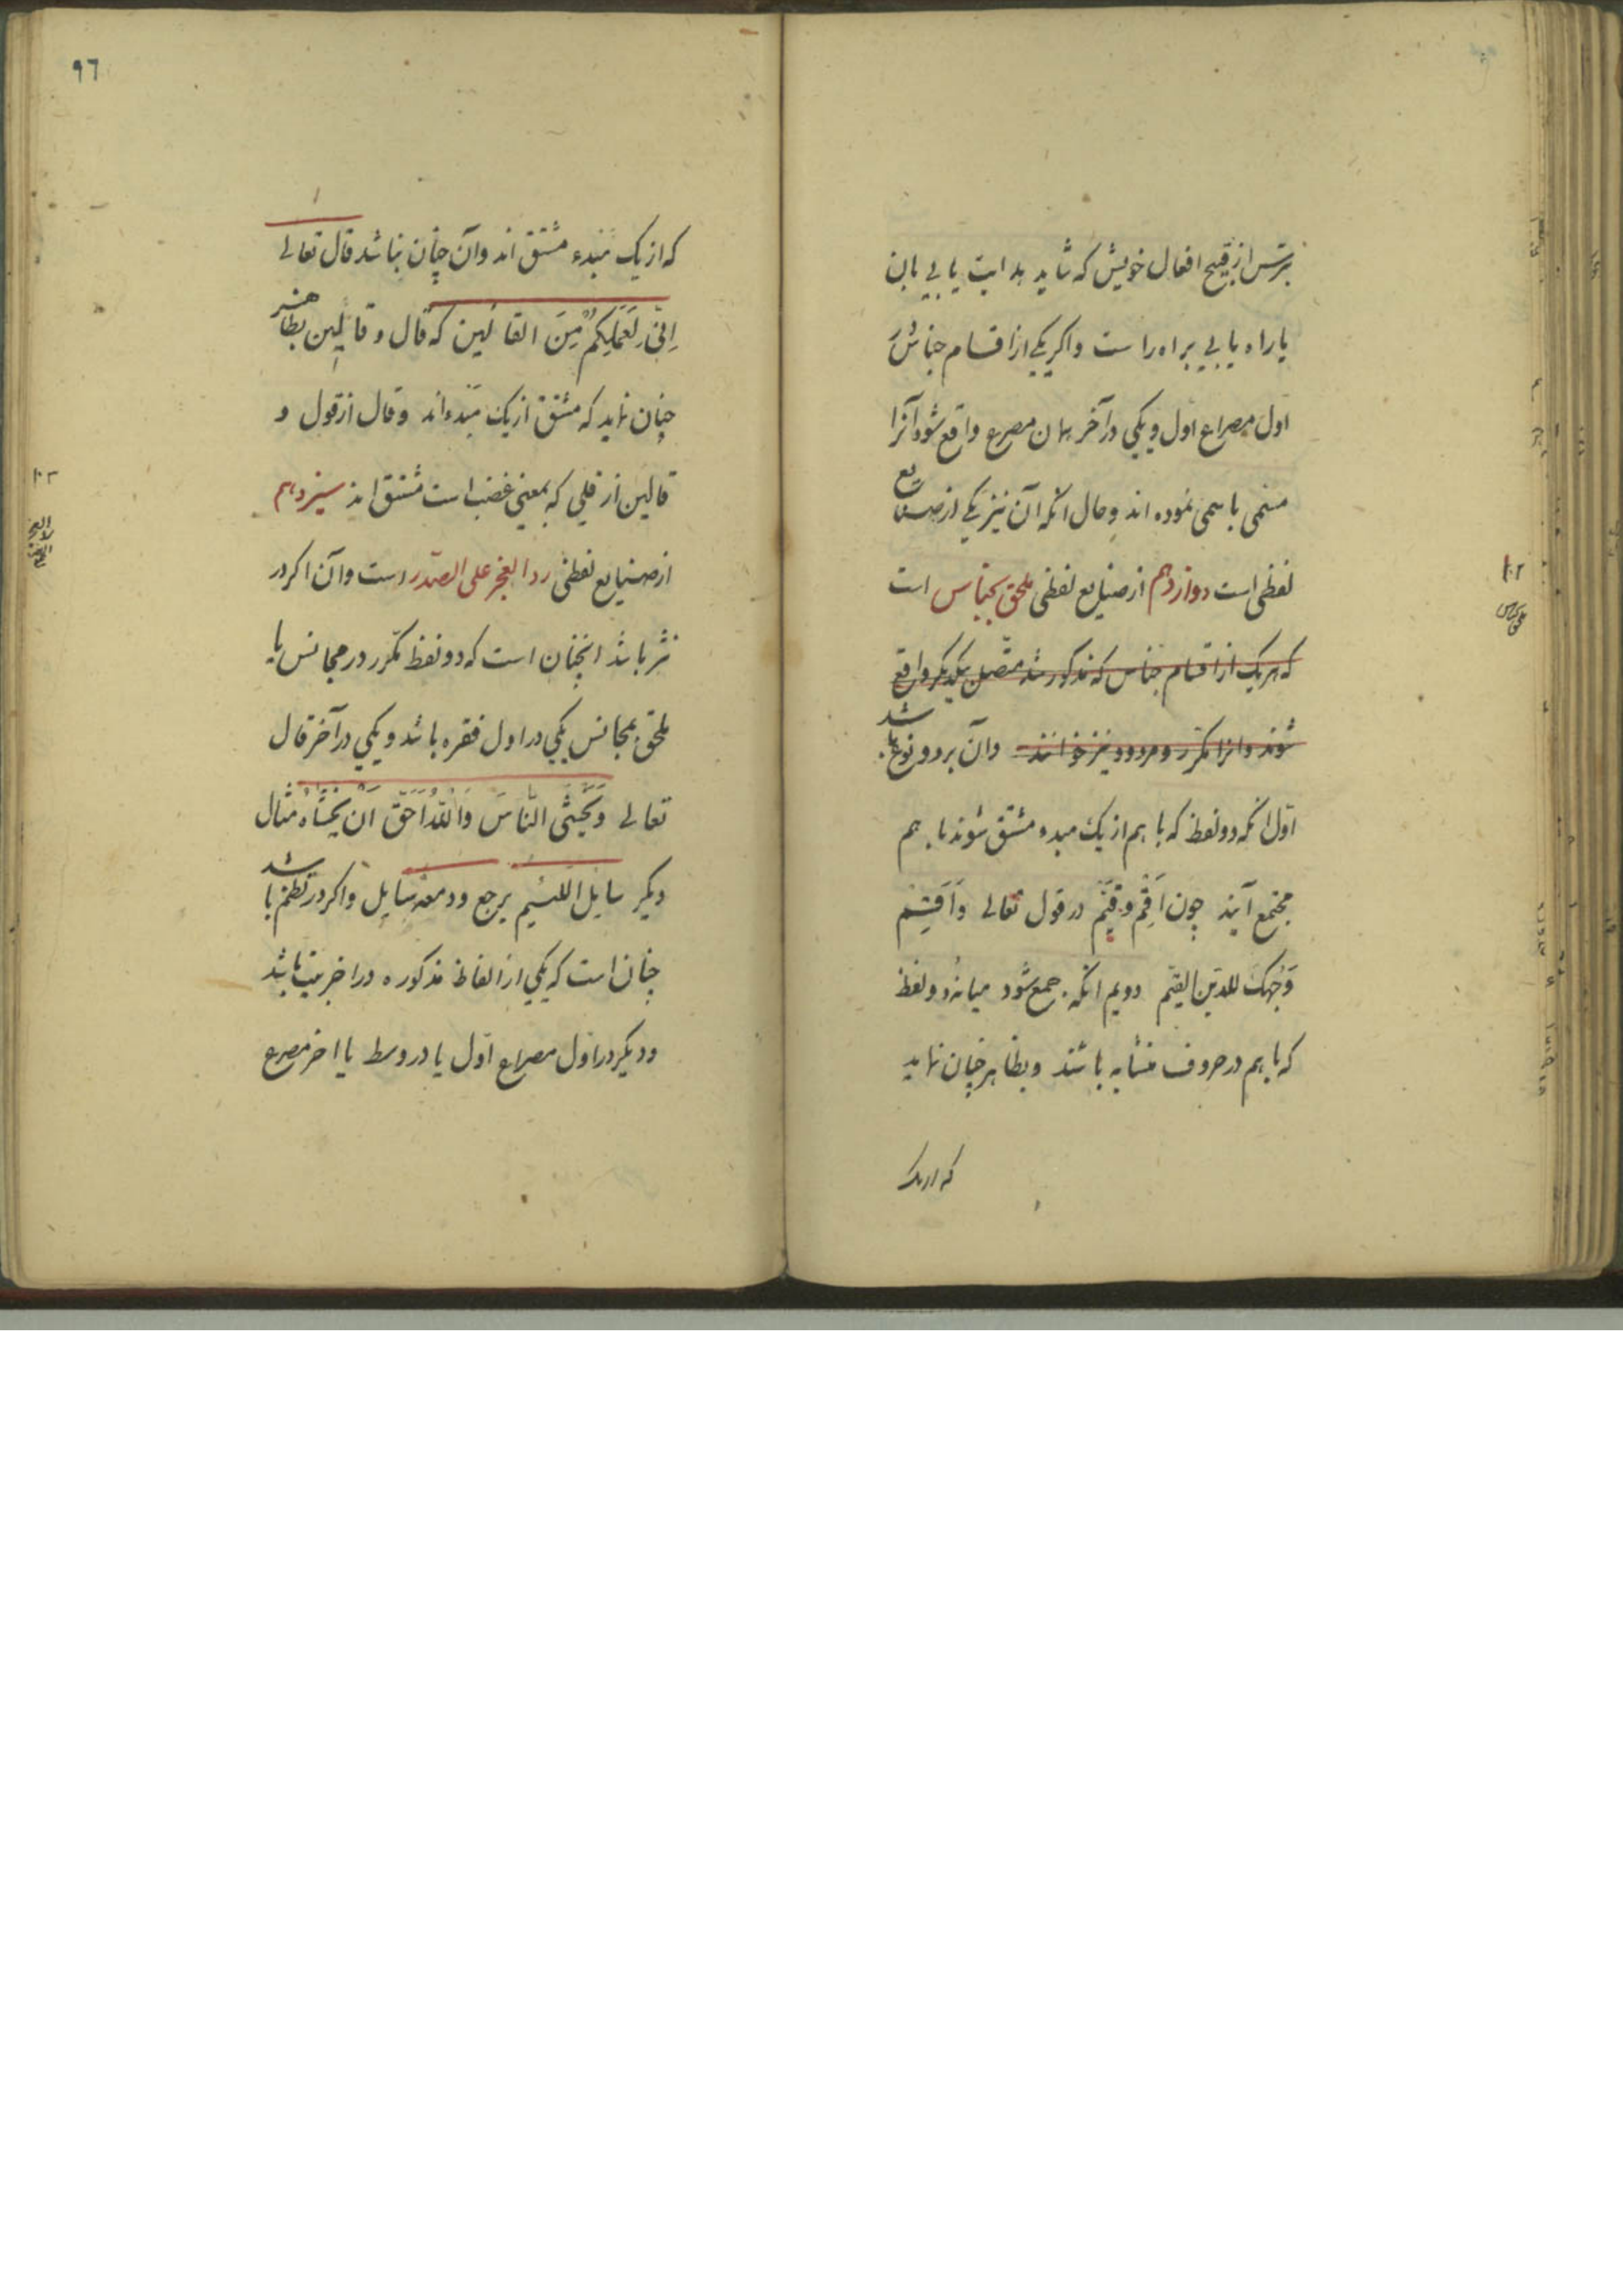 بترس از قبیح افعال خویش که شاید هدایت یابی بان
یا راه یابی براه راست واکر یکی از اقسام جناس
اول مصراع اول ویکی در آخر همان مصرع واقع شود آنرا
مسمی باسمی نموده اند وحال انکه آن نیز یکی از صنایع
لفظی است دوازدهم از صنایع لفظی ملحق بجناس است
که هر یک از اقسام جناس که مذکور شد متصل بیکدیکر واقع
شوند وانرا مکرر ومردود نیز خوانند وآن بر دو نوع باشد
اول انکه دو لفظ که با هم از یک مبدء مشتق شوند با هم
مجتمع آیند چون اَقِم وقیّم در قول تعالی وَاَقِم
وَجهک للدّین القیّم دویم انکه جمع شود میانهٔ دو لفظ
که با هم در حروف متشابه باشند وبظاهر چنان نماید
که از یک
٩٦
که از یک مبدء مشتق اند وآن چنان نباشد قال تعالی
اِنّی لِعَمَلِکُم مِنَ القالین که قال وقالین بظاهر
چنان نماید که مشتق از یک مبدءاند وقال از قول و
قالین از قلی که بمعنی غضب است مشتق اند سیزدهم
از صنایع لفظی ردالعجز علی الصّدر است وآن اکر در
نثر باشد انچنان است که دو لفظ مکرر در مجانس یا
ملحق بمجانس یکی در اول فقره باشد ویکی در آخر قال
تعالی وَتَخشَی النّاسَ وَاللهُ اَحَقّ اَن تَخشَاهُ مثال
دیکر سایل اللئیم یرجع ودمعه سایل واکر در نظم باشد
چنان است که یکی از الفاظ مذکوره در اخر بیت باشد
ودیکر در اول مصراع اول یا در وسط یا اخر مصرع